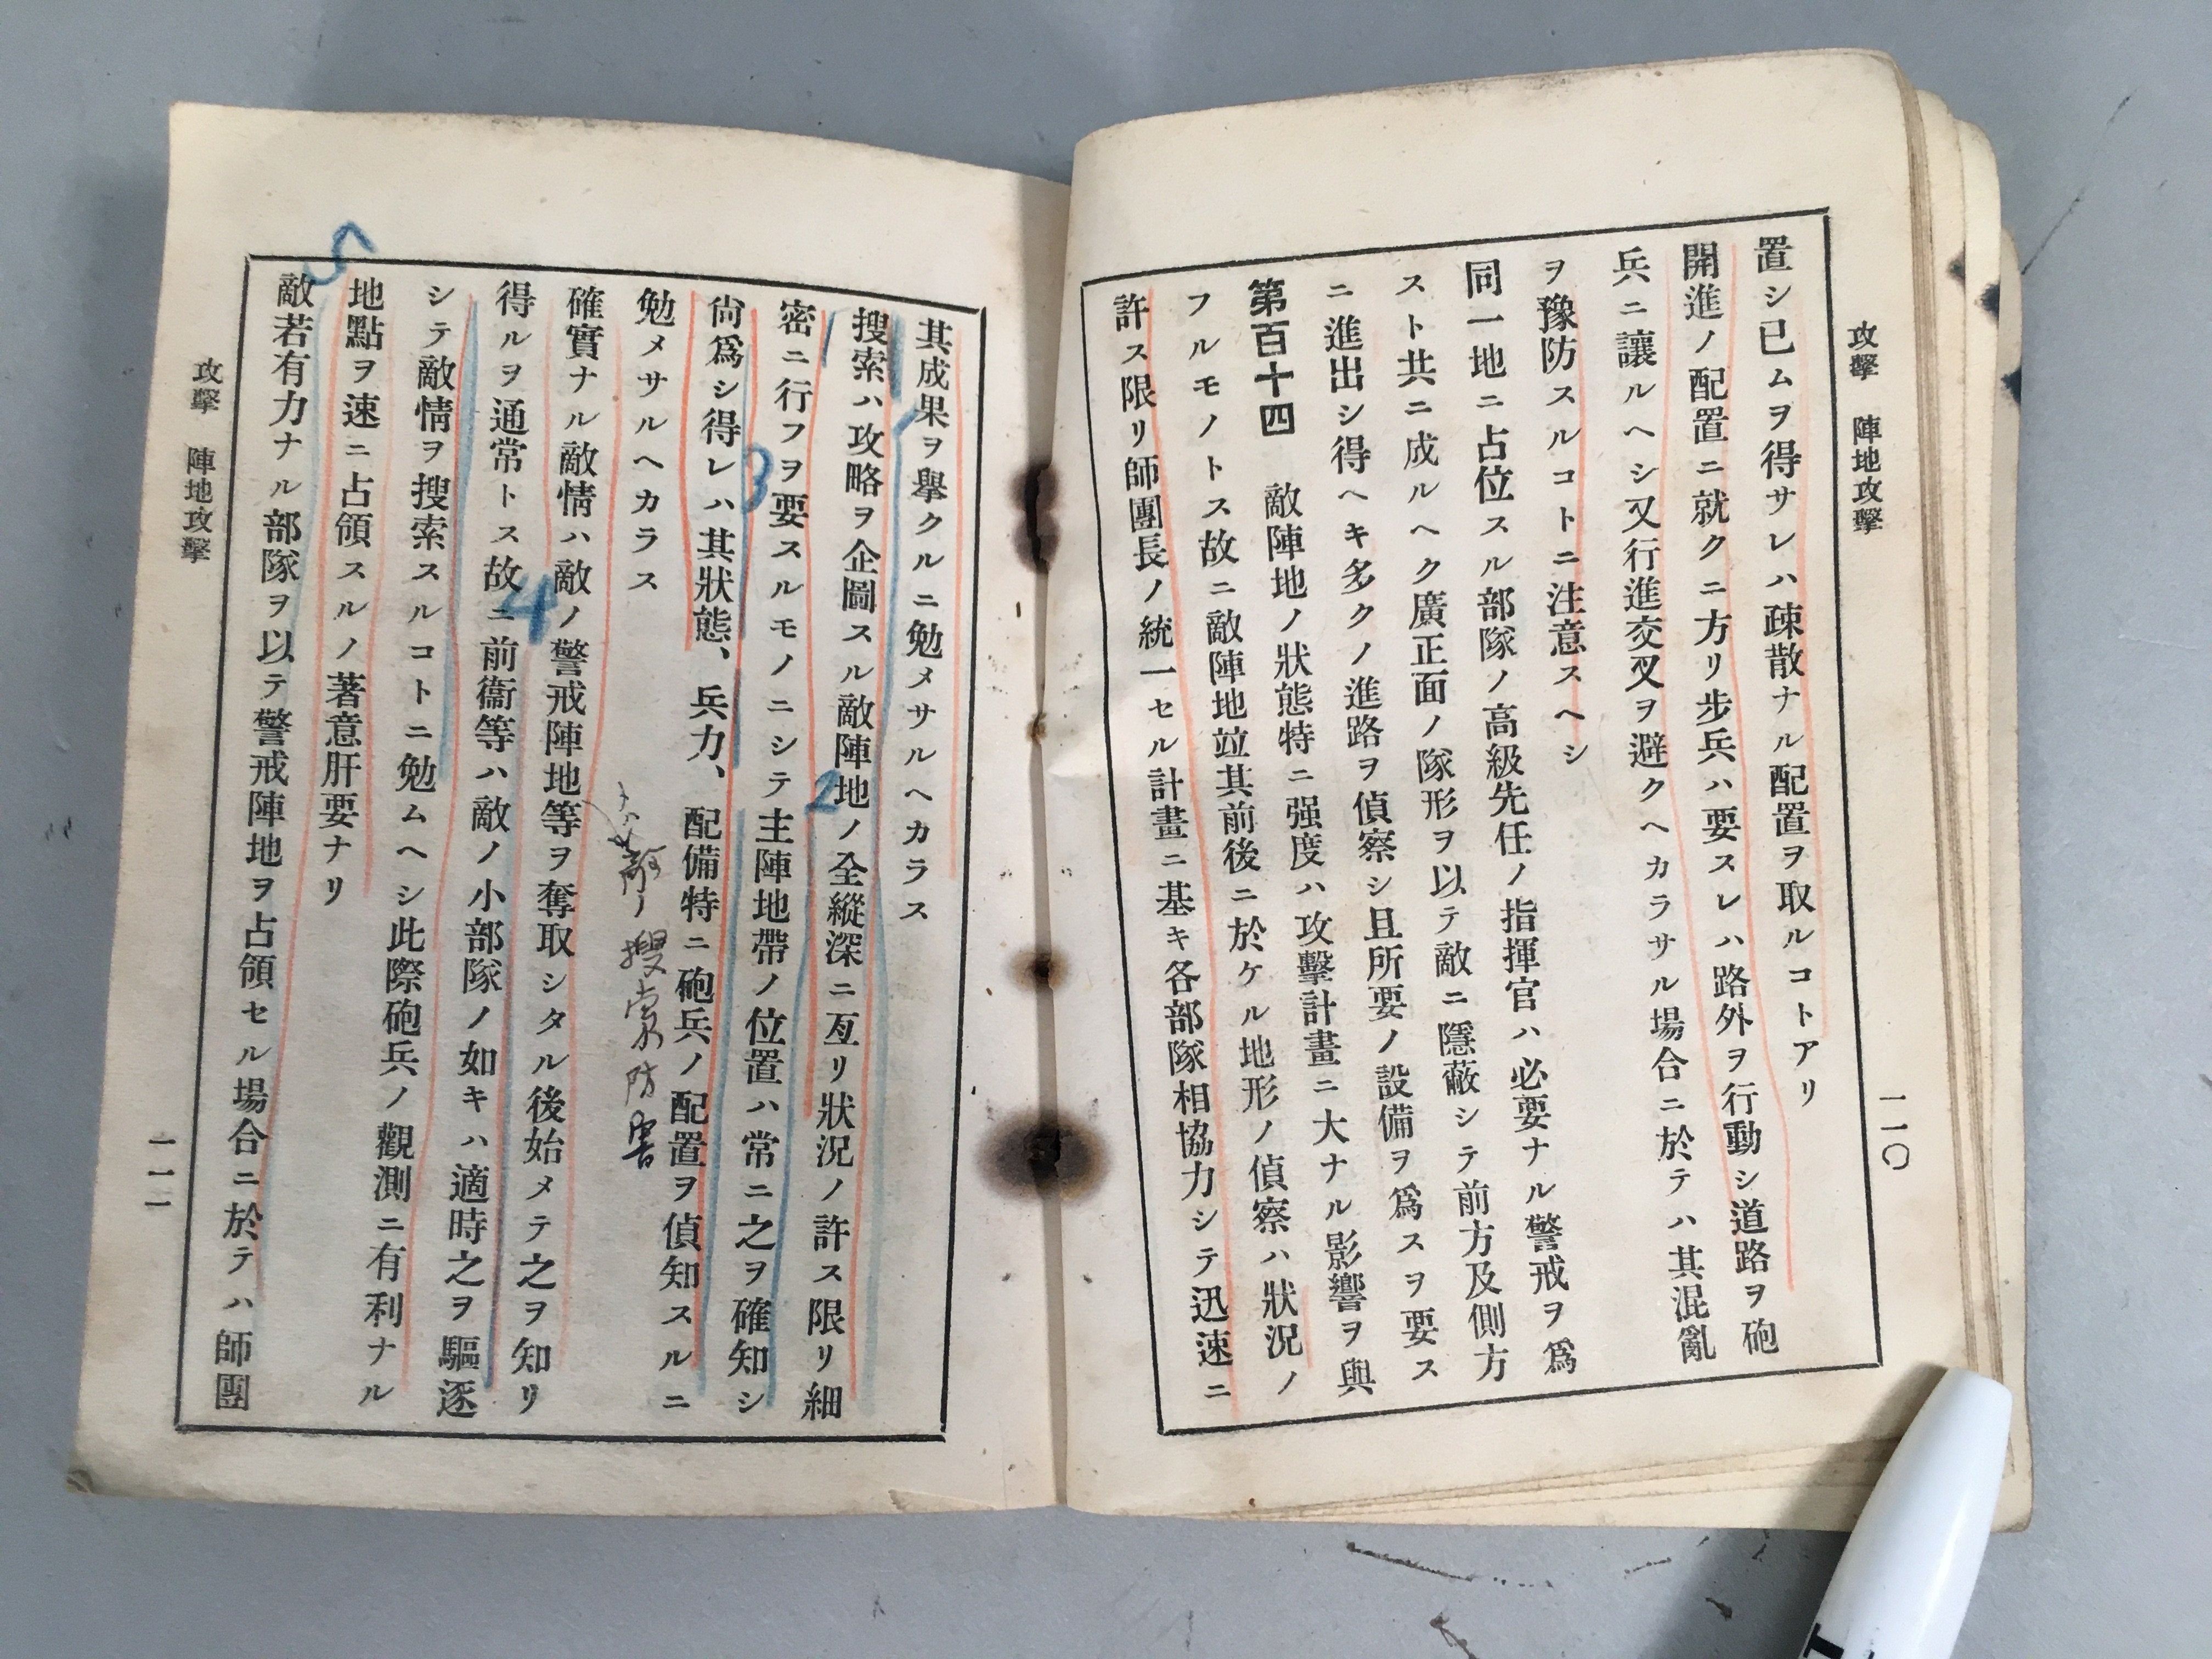 攻擊 陣地攻擊
一一〇
置シ已ムヲ得サレハ疎散ナル配置ヲ取ルコトアリ
開進ノ配置ニ就クニ方リ步兵ハ要スレハ路外ヲ行動シ道路ヲ砲
兵ニ讓ルヘシ又行進交叉ヲ避クヘカラサル場合ニ於テハ其混亂
ヲ豫防スルコトニ注意スヘシ
同一地ニ占位スル部隊ノ高級先任ノ指揮官ハ必要ナル警戒ヲ爲
スト共ニ成ルヘク廣正面ノ隊形ヲ以テ敵ニ隱蔽シテ前方及側方
ニ進出シ得ヘキ多クノ進路ヲ偵察シ且所要ノ設備ヲ爲スヲ要ス
第百十四 敵陣地ノ狀態特ニ强度ハ攻擊計畫ニ大ナル影響ヲ與
フルモノトス故ニ敵陣地竝其前後ニ於ケル地形ノ偵察ハ狀況ノ
許ス限リ師團長ノ統一セル計畫ニ基キ各部隊相協力シテ迅速ニ
其成果ヲ擧クルニ勉メサルヘカラス
搜索ハ攻略ヲ企圖スル敵陣地ノ全縱深ニ亙リ狀況ノ許ス限リ細
密ニ行フヲ要スルモノニシテ主陣地帶ノ位置ハ常ニ之ヲ確知シ
尙爲シ得レハ其狀態、兵力、配備特ニ砲兵ノ配置ヲ偵知スルニ
勉メサルヘカラス
搜索防害
確實ナル敵情ハ敵ノ警戒陣地等ヲ奪取シタル後始メテ之ヲ知リ
得ルヲ通常トス故ニ前衞等ハ敵ノ小部隊ノ如キハ適時之ヲ驅逐
シテ敵情ヲ搜索スルコトニ勉ムヘシ此際砲兵ノ觀測ニ有利ナル
地點ヲ速ニ占領スルノ著意肝要ナリ
敵若有力ナル部隊ヲ以テ警戒陣地ヲ占領セル場合ニ於テハ師團
攻擊 陣地攻擊
一一一
2
3
4
5